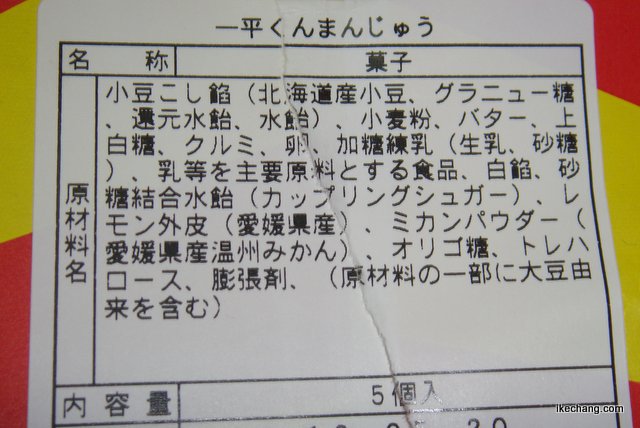 一平くんまんじゅう
名 称 菓子
原材料名
小豆こし餡（北海道産小豆、グラニュー糖
、還元水飴、水飴）、小麦粉、バター、上
白糖、クルミ、卵、加糖練乳（生乳、砂糖
）、乳等を主要原料とする食品、白餡、砂
糖結合水飴（カップリングシュガー）、レ
モン外皮（愛媛県産）、ミカンパウダー（
愛媛県産温州みかん）、オリゴ糖、トレハ
ロース、膨張剤、（原材料の一部に大豆由
来を含む）
内容量 5個入
ikechang.com